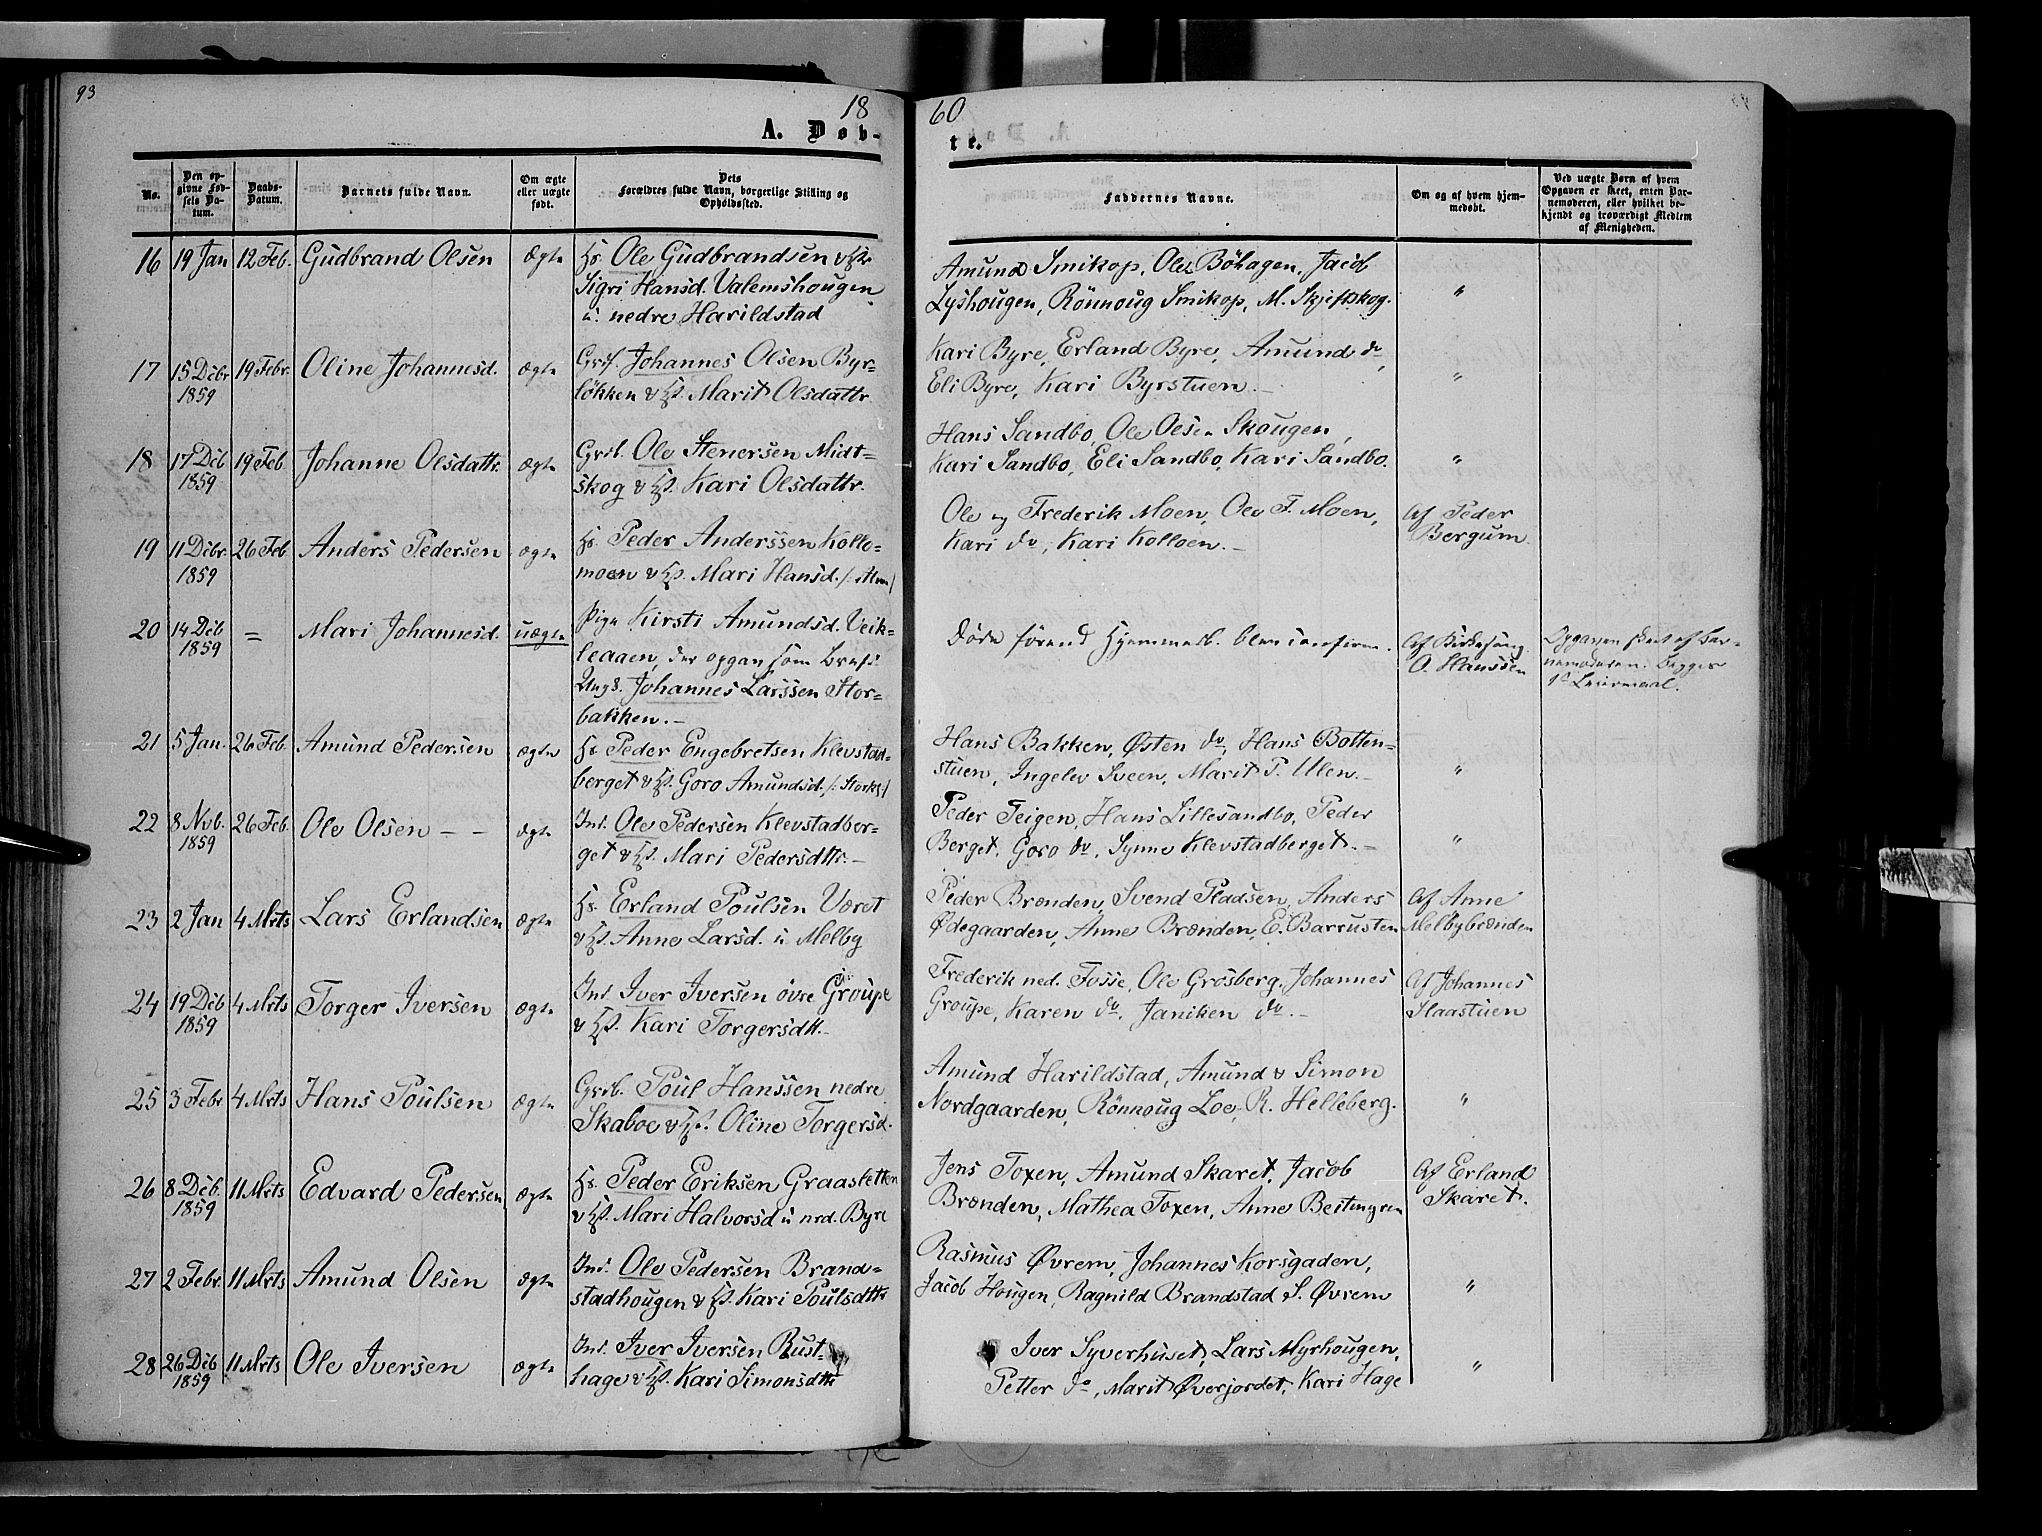 93
18
60
A. Døb-
te.
No.
Den op-
givne Fød-
sels Da-
tum.
Daabs-
Datum.
Barnets fulde Navn.
Om ægte
eller uægte
født.
Dets
Forældres fulde Navn, borgerlige Stilling og
Opholdssted.
Faddernes Navne.
Om og af hvem hjem-
medøbt.
Ved uægte Børn af hvem
Opgaven er skeet, enten Bar-
nemoderen, eller hvilket be-
kjendt og troværdigt Medlem
af Menigheden.
16 19 Jan 12 Feb. Gudbrand Olsen ægte Hs. Ole Gudbrandsen & Hst.
Sigri Hansd. Valemshougen
u. nedre Harildstad
Amund Smikop, Ole Bøhagen, Jacob
Lyshougen, Rönnoug Smikop, M. Skjefskog. "
17 15 Debr 1859 19 Febr. Oline Johannesd. ægte Grbf. Johannes Olsen Byr-
løkken & Hst. Marit Olsdattr.
Kari Byre, Erland Byre, Amund do,
Eli Byre, Kari Byrstuen. - "
18 17 Deb 1859 19 Feb Johanne Olsdattr. ægte Grbf. Ole Stenersen Midt-
skog & Hst. Kari Olsdattr.
Hans Sandbo, Ole Olsen Skougen,
Kari Sandbo, Eli Sandbo, Kari Sandbo. "
19 11 Debr. 1859 26 Feb Anders Pedersen ægte Hs. Peder Anderssen Kollo-
moen & Hst. Mari Hansd.
Ole og Frederik Moen, Ole F. Moen,
Kari do, Kari Kolloen. -
Af Peder
Bergum
20 14 Deb 1859 = Mari Johannesd. uægte Pige Kirsti Amundsd. Veik-
leagen, der opgav som Barnef.
Ungk. Johannes Larssen Stor-
bakken. -
Døde førend Hjemmed. blev confirm.
Af Kirkesang.
O. Hanssen
Opgaven skeet af Bar-
nemoderen. Begges
1ste Leiermaal.
21 5 Jan. 26 Feb. Amund Pedersen ægte Hs. Peder Engebretsen Klevstad-
berget & Hst. Goro Amundsd.
Hans Bakken, Østen do, Hans Botten-
stuen, Ingelev Sveen, Marit P. Ulen. - "
22 8 Nvb. 1859 26 Feb. Ole Olsen - - ægte Ind. Ole Pedersen Klevstadber-
get & Hst. Mari Pedersdttr. -
Peder Teigen, Hans Lillesandbo, Peder
Berget, Goro do, Synne Klevstadberget. - "
23 2 Jan 4 Mrts Lars Erlandsen ægte Hs. Erland Poulsen Været
& Hst. Anne Larsd. u Melby
Peder Brenden, Svend Pladsen, Anders
Ødegaarden, Anne Brænden, E. Barrusten
Af Anne
Melbybrænden
24 19 Deb 1859 4 Mrts Torger Iversen ægte Ind. Iver Iversen övre Groupe
& Hst. Kari Torgersdtt. -
Frederik ned. Fosse, Ole Grosberg, Johannes
Groupe, Karen do, Janiken do. -
Af Johannes
Haastuen
25 3 Febr 4 Mrts Hans Poulsen ægte Grbf. Poul Hanssen nedre
Skaboe & Hst. Oline Torgersd.
Amund Harildstad, Amund & Simon
Nordgaarden, Rönnoug Loe, R. Helleberg. "
26 8 Deb. 1859 11 Mrts Edvard Pedersen ægte Hs. Peder Eriksen Graasletten
& Hst. Mari Halvorsd u nrd. Byre
Jens Toxen, Amund Skaret, Jacob
Brenden, Mathea Toxen, Anne Beitingren
Af Erland
Skaret.
27 2 Febr. 11 Mrts Amund Olsen ægte Ind. Ole Pedersen Brand-
stadhougen & Hst. Kari Poulsdttr
Rasmus Øvrem, Johannes Korsgaden,
Jacob Hougen, Ragnild Brandstad S. Øvrem "
28 26 Deb 1859 11 Mrts Ole Iversen ægte Ind. Iver Iversen Rust-
hage & Hst. Kari Simonsdttr
Iver Syverhuset, Lars Myrhougen,
Petter do, Marit Øverjordet, Kari Hage "